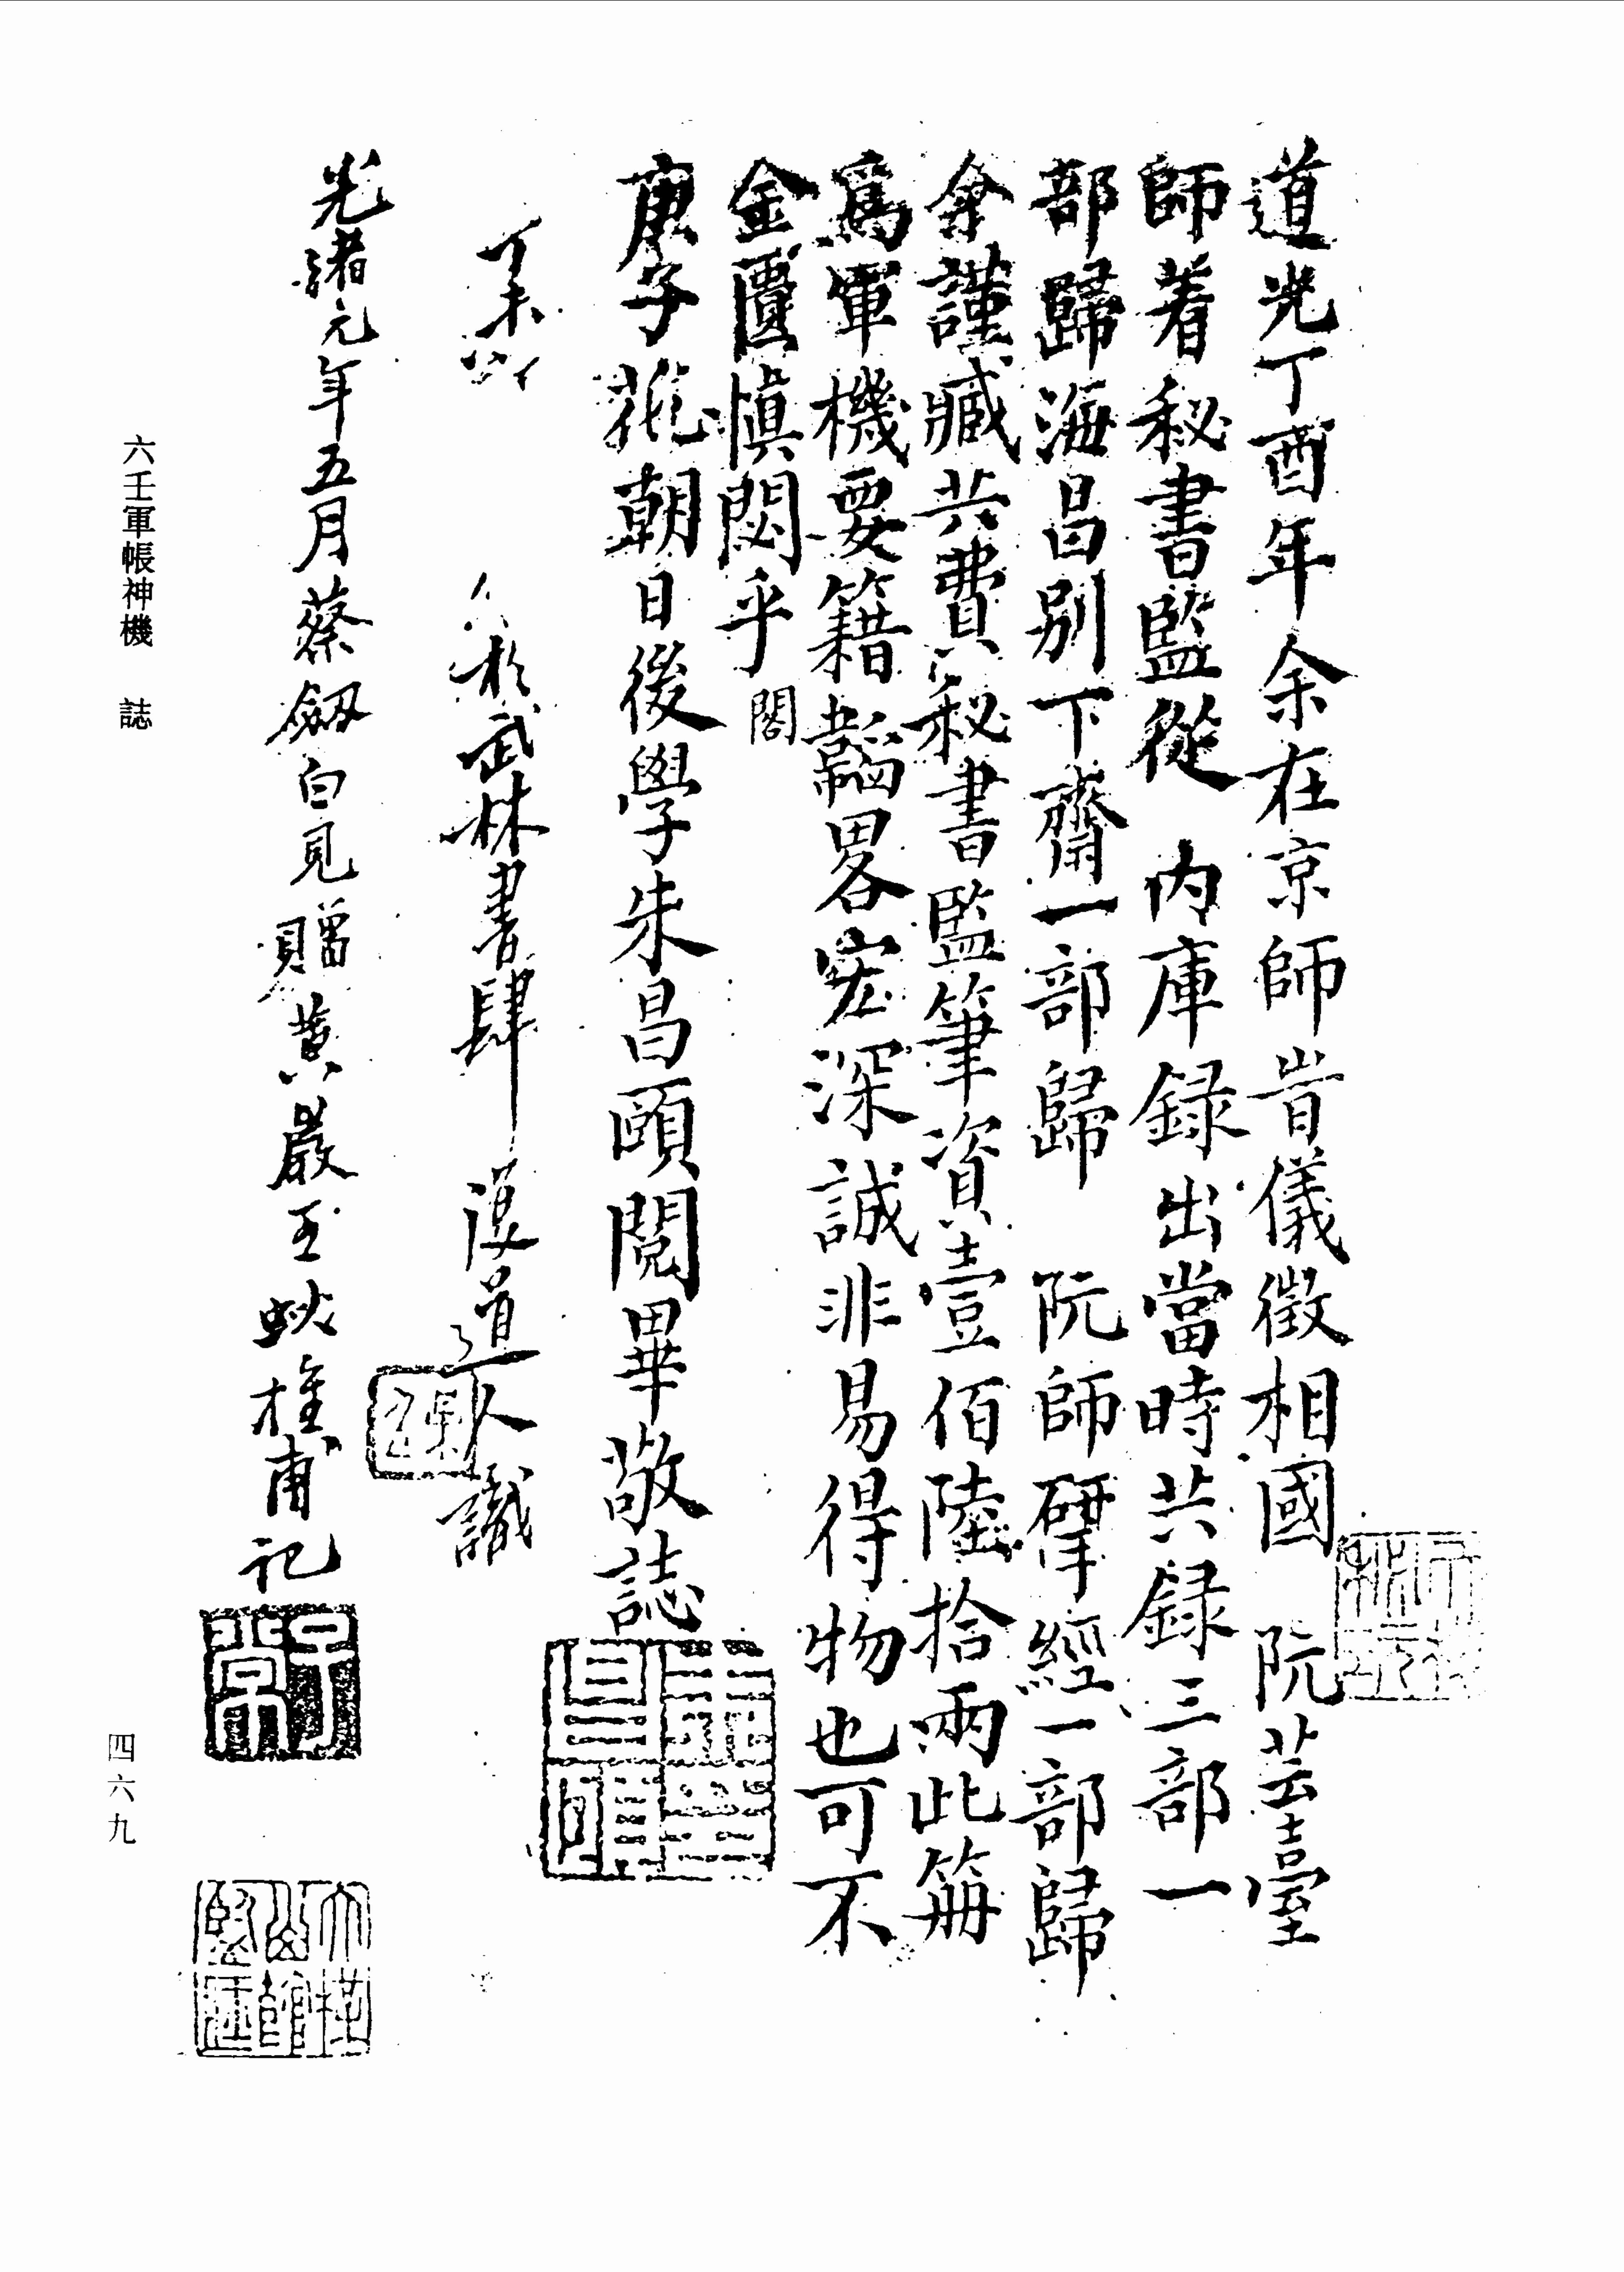 道光丁酉年余在京師岢儀徵相國　阮芸臺
師着秘書監從　內庫録出當時共録三部一
部歸海昌别下齋一部歸　阮師揅經一部歸
余謹臧共費秘書監筆資壹佰陸拾兩此册
爲軍機要籍韜畧宏深誠非易得物也可不
金匱愼閟乎
閣
庚子花朝日後學朱昌頤閱畢敬誌
丁未　於武林書肆　道人識
光緒元年五月蔡劔白見贈黄巖王蛻㩁甫記
六壬軍帳神機　誌
四六九